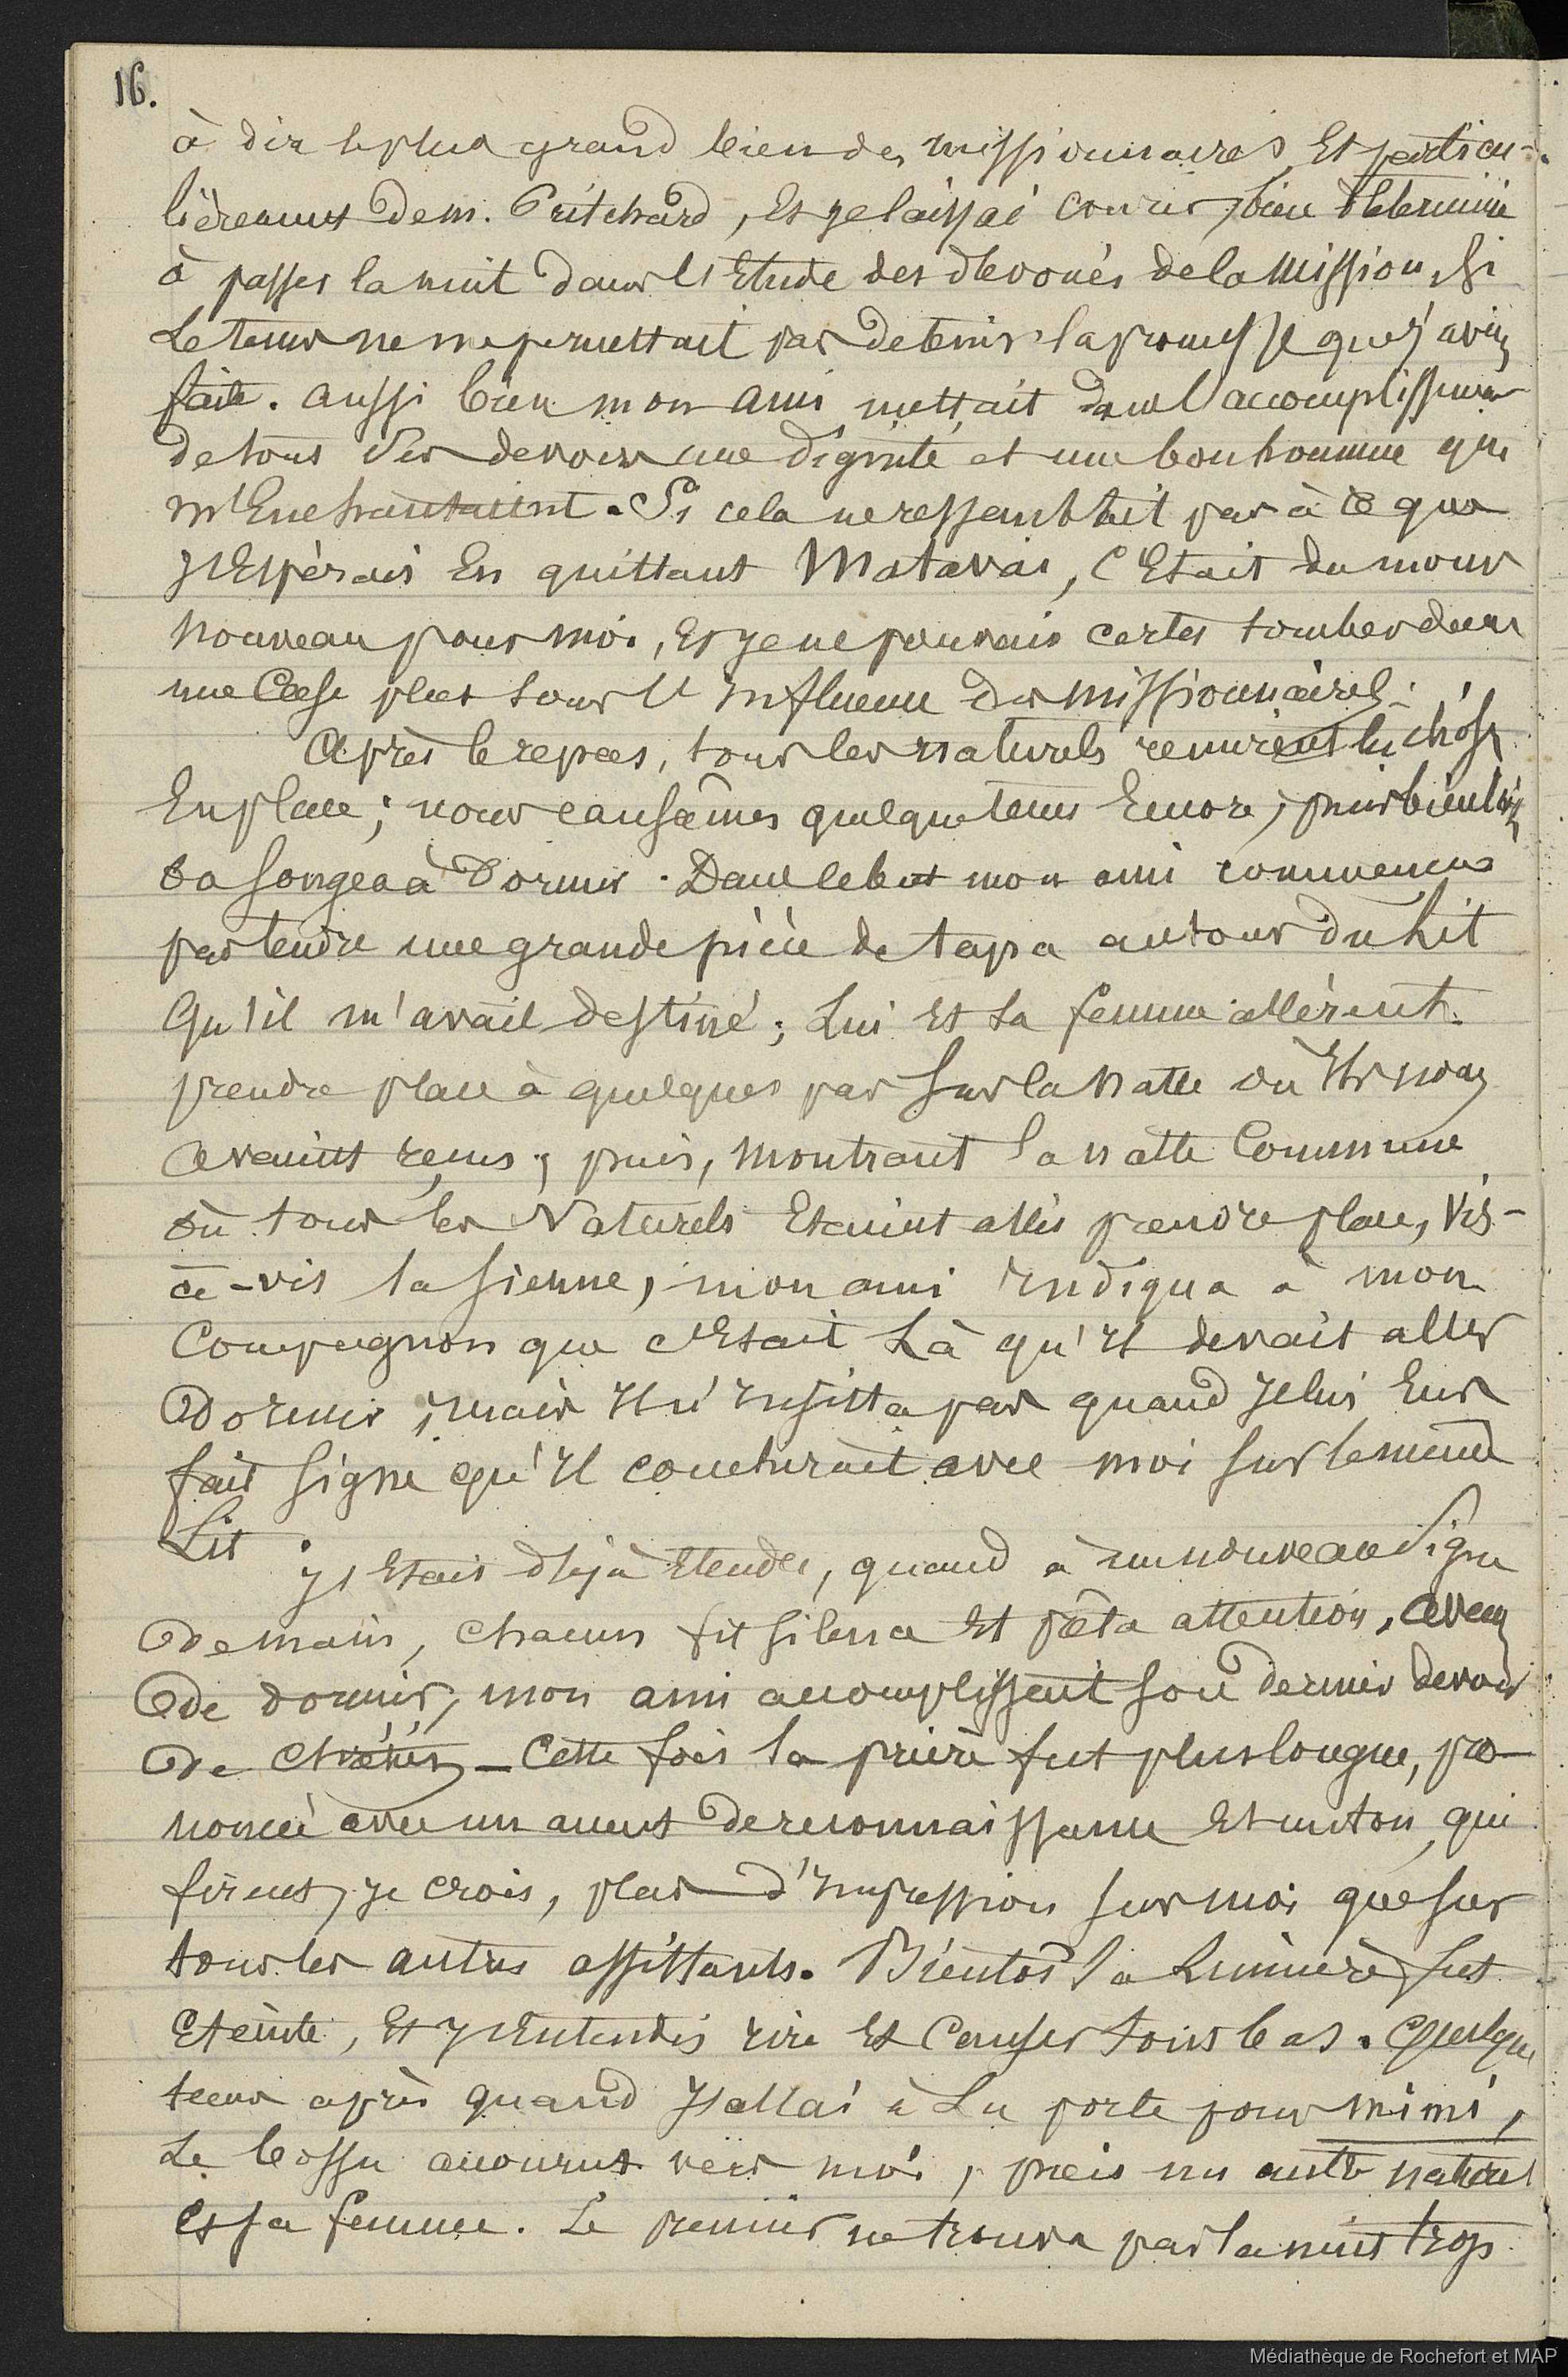 16.
à dire le plus grand bien des missionnaires et particu-
lièrement de m. Pritchard, et je laissai courir, bien déterminé
à passer la nuit dans l'Etude des dévoués de la Mission, si
le tems ne me permettait pas de tenir la promesse que j'avais
faite. aussi bien mon ami mettait dans l'accomplissement
de tous ses devoirs une dignité et une bonhommie qui
m'Enchantaient. Si cela ne ressemblait pas à ce que
j'Espérais En quittant Matavai, c'Etait du moins
nouveau pour moi, Et je ne pouvais certes tomber dans
une Case plus sous l'influence des missionnaires.
Après le repas, tous les naturels remirent les choses
En place; nous causâmes quelque tems Encore, puis bientôt
on songea à dormir. Dans le but mon ami commença
par tendre une grande pièce de tapa autour du Lit
Qu'il m'avait destiné; Lui Et sa femme allèrent
prendre place à quelques pas sur la natte où Ils nous
avaient reçus; puis, montrant la natte Commune
où tous les Naturels Etaient allés prendre place, Vis-
à-vis la sienne, mon ami Indiqua à mon
Compagnon que c'Etait Là qu'Il devait aller
Dormir; mais Il n'Insista pas quand Je lui Eus
fait signe qu'Il coucherait avec moi sur le même
Lit
j'Etais déjà Etendu, quand à un nouveau Signe
De main, chacun fit silence Et prêta attention, avant
De dormir, mon ami accomplissant son dernier devoir
De chrétien – Cette fois la prière fut plus longue, pro-
noncée avec un accent de reconnaissance Et un ton, qui
firent, je crois, plus d'Impression sur moi que sur
tous les autres assistants. Bientôt la Lumière fut
Eteinte, Et j'Entendis rire Et Causer tous bas. Quelque
tems après quand J'allai à La porte pour mimi,
Le bossu accourut vers moi, puis un autre naturel
Et sa femme. Le premier ne trouva pas la nuit trop
Médiathèque de Rochefort et MAP